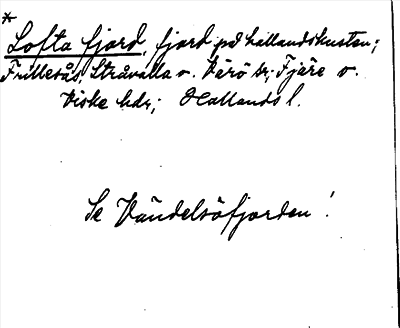 *
Lofta fjord, fjord på hallandskusten;
Frillesås, Stråvalla o. Värö sr; Fjäre o.
Viske hdr; Hallands l.
Se Vändelsöfjorden!